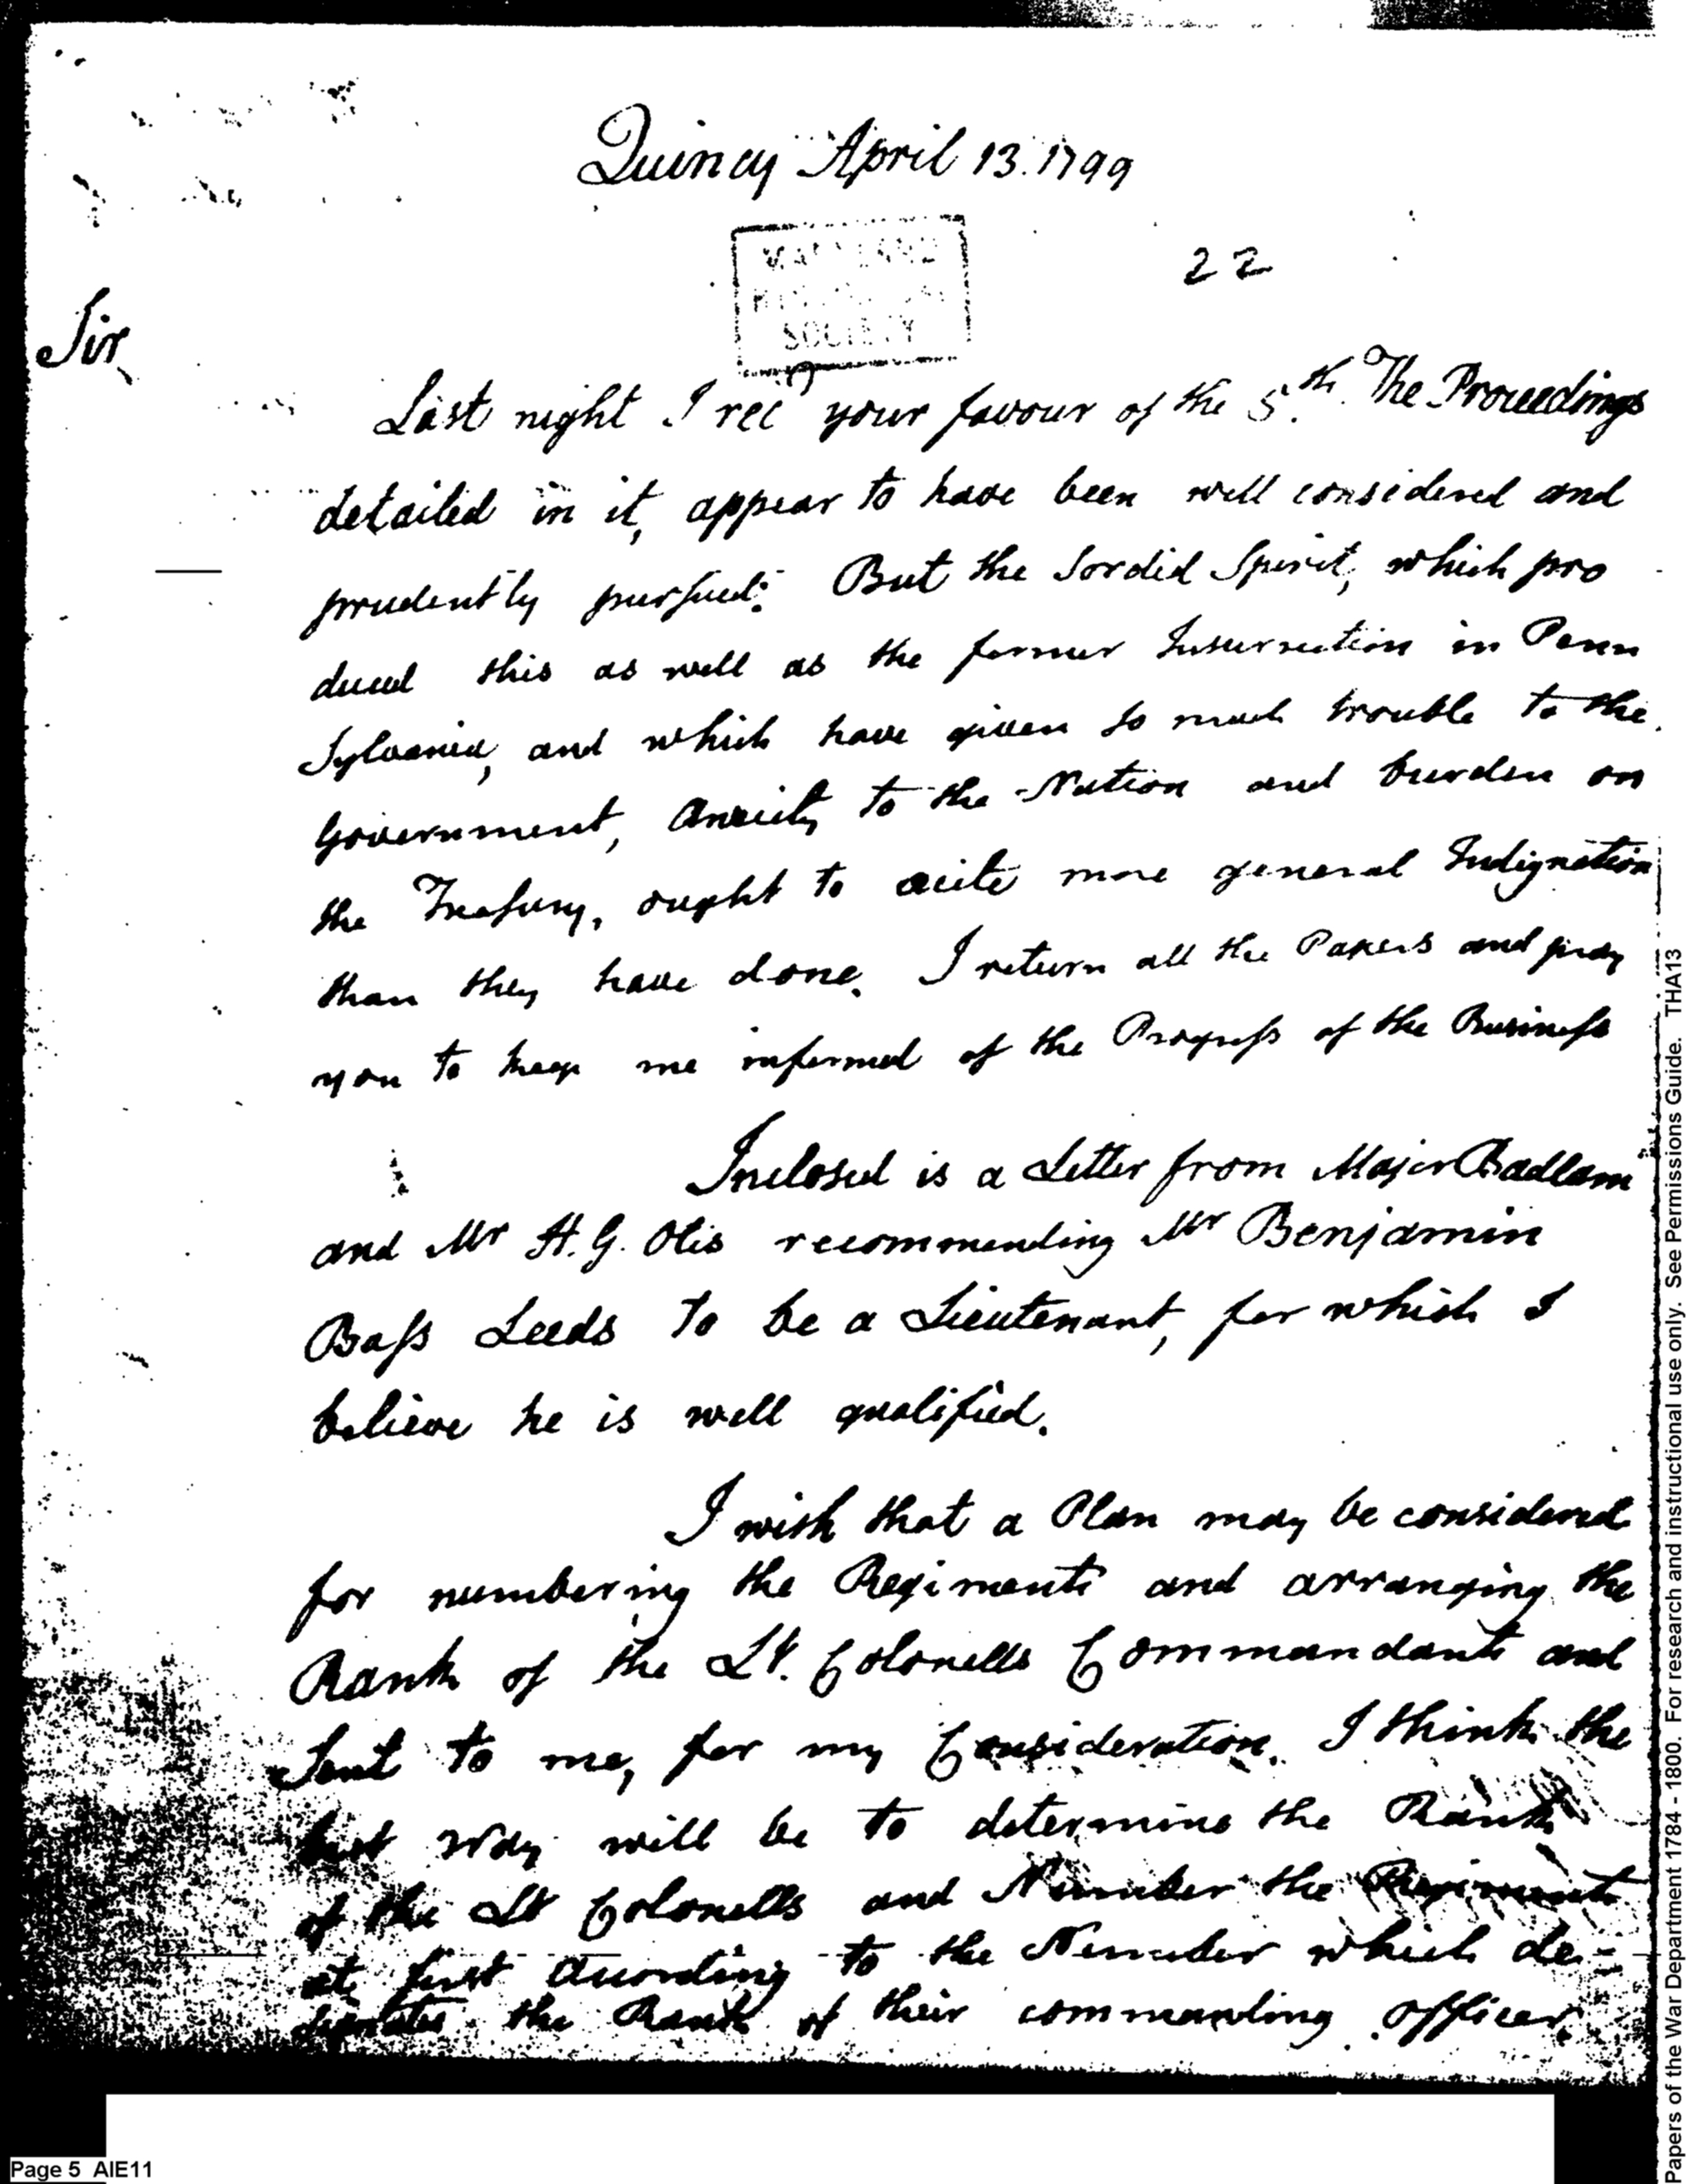 Quincy April 13. 1799
MARYLAND
HISTORICAL
SOCIETY
22
Sir
Last night I recd your favour of the 5.th The Proceedings
detailed in it, appear to have been well considered and
prudently pursued: But the Sordid Spirit, which pro
duced this as well as the former Insurrection in Penn
Sylvania, and which have given so much trouble to the
Government, Anxiety to the Nation and burden on
the Treasury, ought to excite more general Indignation
than they have done. I return all the Papers and pray
you to keep me informed of the Progress of the Business
Inclosed is a Letter from Major Badlam
and Mr H. G. Otis recommending Mr Benjamin
Bass Leeds to be a Lieutenant, for which I
believe he is well qualified.
I wish that a Plan may be considered
for numbering the Regiments and arranging the
Rank of the Lt. Colonells Commandants and
Sent to me, for my Consideration. I think the
best Way will be to determine the Rank
of the Lt Colonells and Number the Regiments
at first according to the Number which de-
the Rank of their commanding officer.
Papers of the War Department 1784 - 1800. For research and instructional use only. See Permissions Guide. THA13
Page 5 AIE11